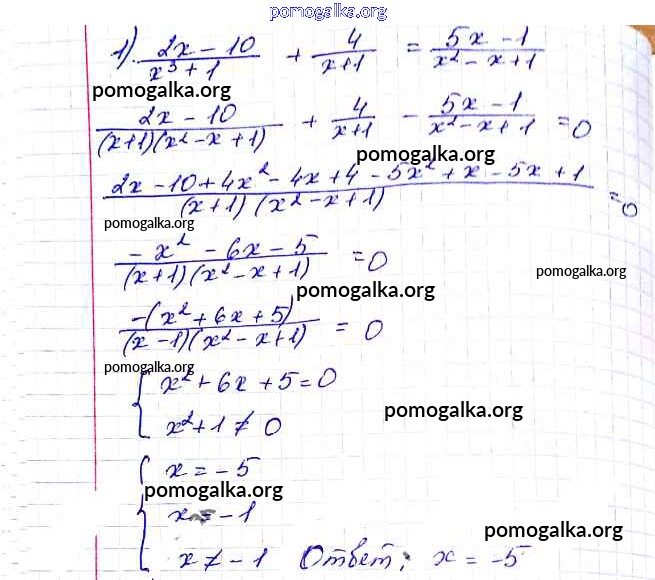 pomogalka.org
1) (2x - 10)/(x³ + 1) + 4/(x+1) = (5x - 1)/(x² - x + 1)
pomogalka.org
(2x - 10)/((x+1)(x² - x + 1)) + 4/(x+1) - (5x - 1)/(x² - x + 1) = 0
pomogalka.org
(2x - 10 + 4x² - 4x + 4 - 5x² + x - 5x + 1)/((x+1)(x² - x + 1)) = 0
pomogalka.org
(- x² - 6x - 5)/((x+1)(x² - x + 1)) = 0
pomogalka.org
pomogalka.org
(-(x² + 6x + 5))/((x - 1)(x² - x + 1)) = 0
pomogalka.org
{ x² + 6x + 5 = 0
pomogalka.org
x² + 1 ≠ 0
{ x = - 5
pomogalka.org
x = - 1
pomogalka.org
x ≠ - 1 Ответ: x = -5